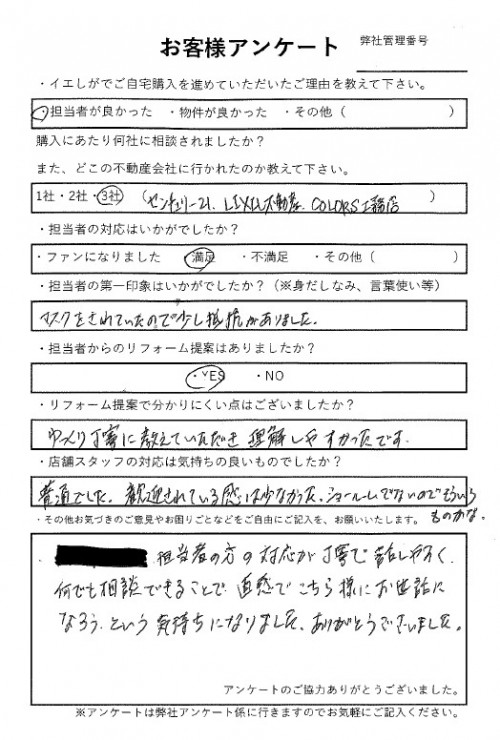 お客様アンケート
弊社管理番号
・イエしがでご自宅購入を進めていただいたご理由を教えて下さい。
・担当者が良かった ・物件が良かった ・その他（ ）
購入にあたり何社に相談されましたか？
また、どこの不動産会社に行かれたのか教えて下さい。
1社・2社・3社 （センチュリー21、LIXIL不動産、COLORS工務店 ）
・担当者の対応はいかがでしたか？
・ファンになりました ・満足 ・不満足 ・その他（ ）
・担当者の第一印象はいかがでしたか？（※身だしなみ、言葉使い等）
マスクをされていたので少し抵抗がありました。
・担当者からのリフォーム提案はありましたか？
・YES ・NO
・リフォーム提案で分かりにくい点はございましたか？
ゆっくり丁寧に教えていただき理解しやすかったです。
・店舗スタッフの対応は気持ちの良いものでしたか？
普通でした。歓迎されている感は少なかった。ショールームでないのでそういう
ものかな。
・その他お気づきのご意見やお困りごとなどをご自由にご記入を、お願いいたします。
担当者の方の対応が丁寧で話しやすく、
何でも相談できることで直感でこちら様にお世話に
なろう、という気持ちになりました。ありがとうございました。
アンケートのご協力ありがとうございました。
※アンケートは弊社アンケート係に行きますのでお気軽にご記入ください。